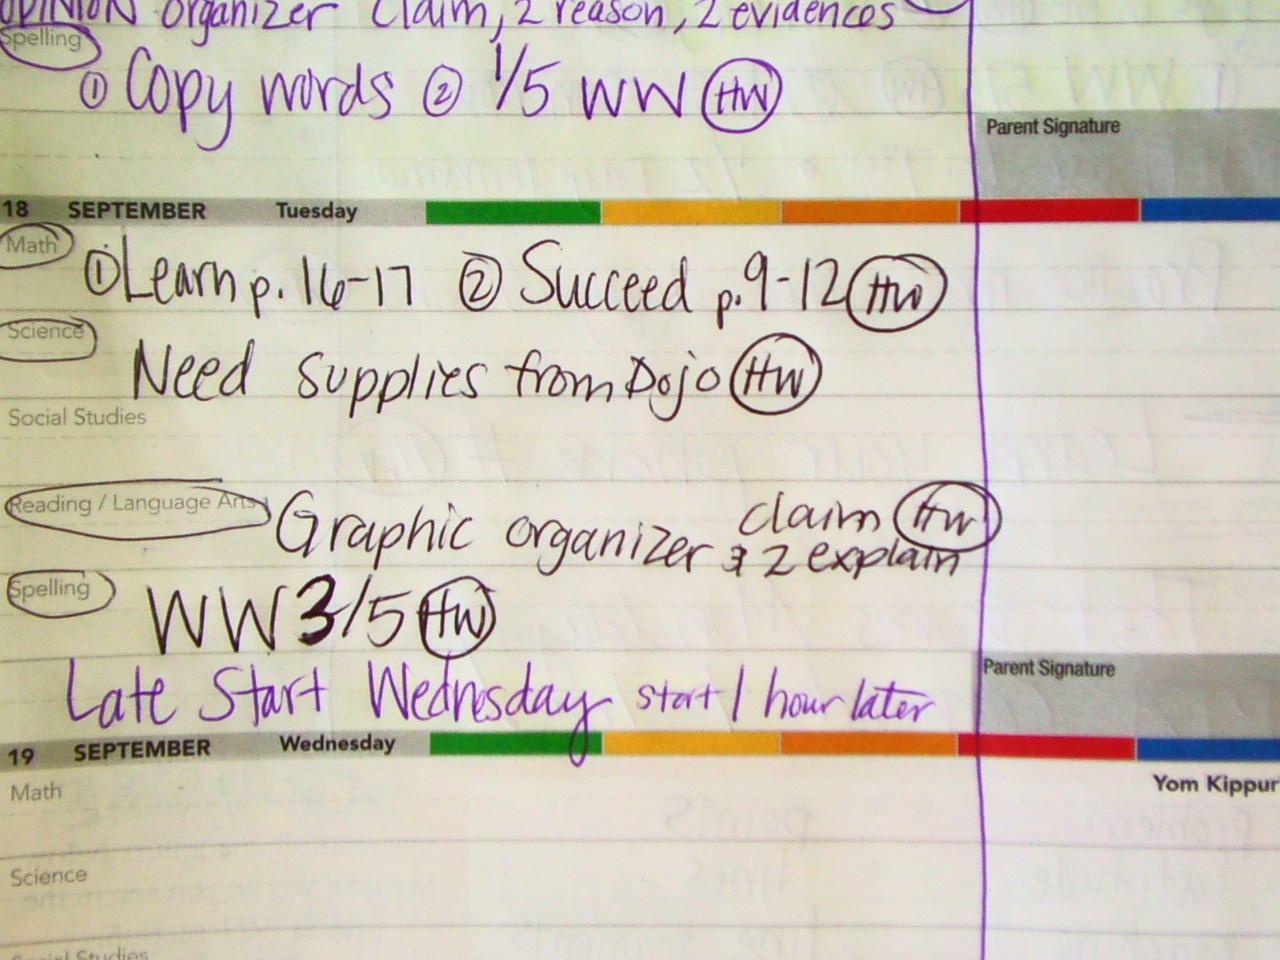 OPINION organizer claim, 2 reason, 2 evidences
Spelling
① Copy words ② 1/5 WW HW
Parent Signature
18 SEPTEMBER Tuesday
Math
① Learn p. 16-17 ② Succeed p. 9-12 HW
Science
Need supplies from Dojo HW
Social Studies
Reading / Language Arts
Graphic organizer claim HW
& 2 explain
Spelling
WW 3/5 HW
Late Start Wednesday start 1 hour later
Parent Signature
19 SEPTEMBER Wednesday
Math
Yom Kippur
Science
Social Studies